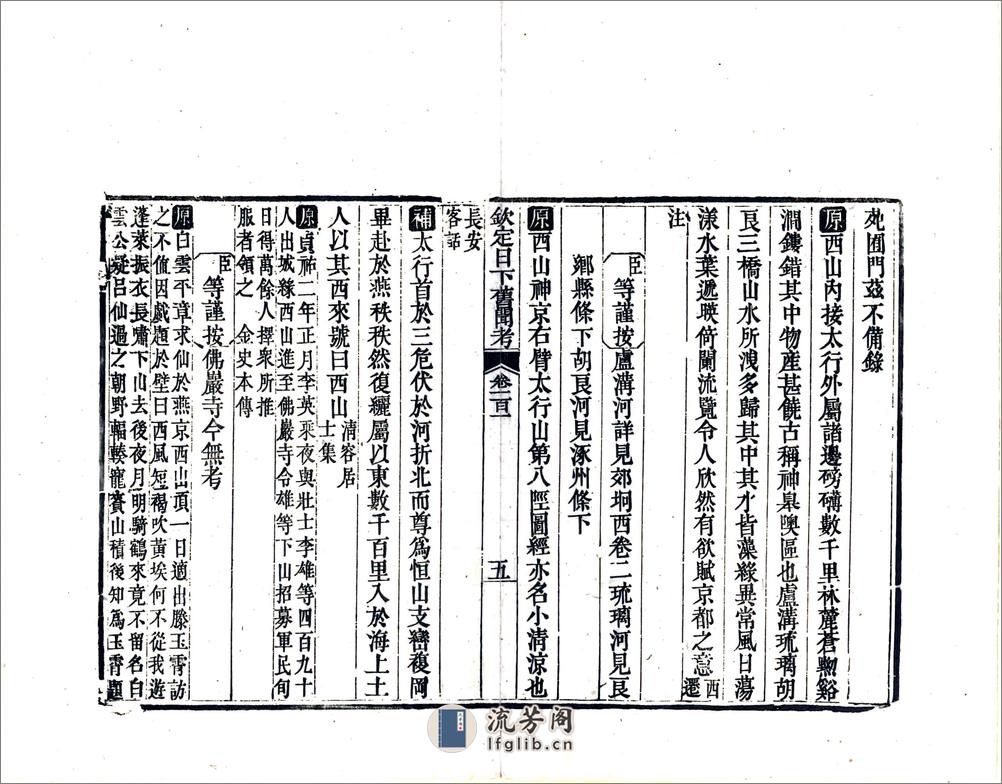 苑囿門茲不備錄
原西山內接太行外屬諸邊磅礴數千里林麓蒼黝谿
澗鏤錯其中物產甚饒古稱神臯噢區也盧溝琉璃胡
良三橋山水所洩多歸其中其水皆藻綠異常風日蕩
漾水葉遞暎倚闌流覽令人欣然有欲賦京都之意西遷
注
臣等謹按盧溝河詳見郊坰西卷二琉璃河見良
鄉縣條下胡良河見涿州條下
原西山神京右臂太行山第八陘圖經亦名小清涼也
欽定日下舊聞考 卷一百 五
長安
客話
補太行首於三危伏於河折北而尊爲恒山支巒複岡
畢赴於燕秩秩然復纚屬以東數千百里入於海上土
人以其西來號曰西山清容居
士集
原貞祐二年正月李英乘夜與壯士李雄等四百九十
人出城緣西山進至佛巖寺令雄等下山招募軍民旬
日得萬餘人擇衆所推
服者領之 金史本傳
臣等謹按佛巖寺今無考
原白雲平章求仙於燕京西山頂一日適出滕玉霄訪
之不值因戲題於壁曰西風短褐吹黃埃何不從我遊
蓬萊振衣長嘯下山去後夜月明騎鶴來竟不留名白
雲公疑呂仙過之朝野輻輳寵賚山積後知爲玉霄題
流芳阁
lfglib.cn